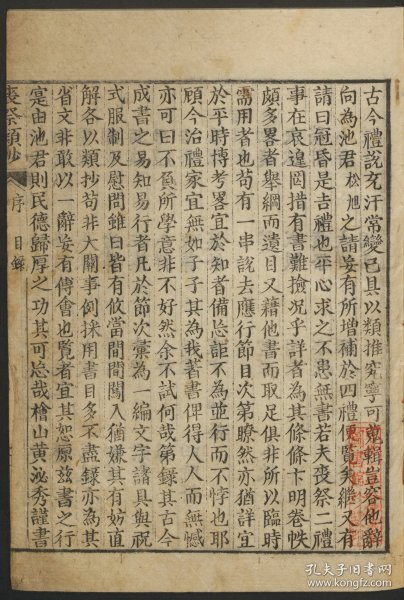 古今禮說充汗常變已具以類推究寧可蒐輯豈容他辭
向為池君松旭之請妄有所增補於四禮便覽矣繼又有
請曰冠昏是吉禮也平心求之不患無書若夫喪祭二禮
事在哀遑罔措有書難撿况乎詳者為其條條卞明卷帙
頗多畧者舉綱而遺目又藉他書而取足俱非所以臨時
需用者也苟有一串說去應行節目次第瞭然亦猶詳宜
於平時博考畧宜於知者備忘詎不為並行而不悖也耶
顧今治禮家宜無如子子其為我著書俾得人人而無憾
亦可曰不負所學意非不好然余不試何哉第錄其古今
成書之易知易行者凡於節次彙為一編文字諸具與祝
式服制及慰問雖曰皆有攸當間間闖入猶嫌其有妨直
解各以類抄苟非大關事例採用書目多不盡錄亦為其
省文非敢以一辭妄有傅會也覽者宜其恕原玆書之行
寔由池君則民德歸厚之功其可忘哉檜山黃泌秀謹書
喪祭類抄 序 目錄
孔夫子旧书网
www.kongfz.com